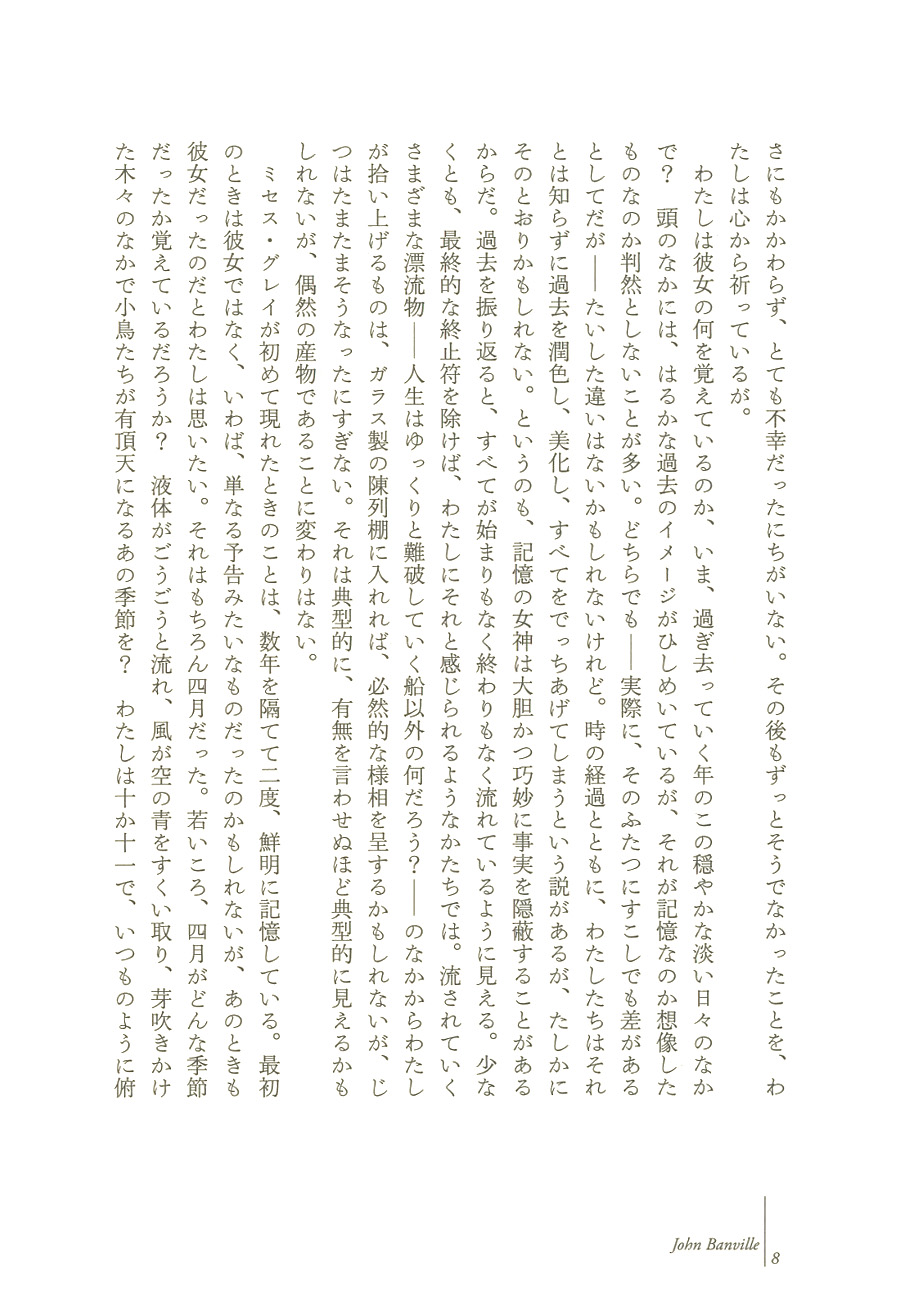 さにもかかわらず、とても不幸だったにちがいない。その後もずっとそうでなかったことを、わ
たしは心から祈っているが。
　わたしは彼女の何を覚えているのか、いま、過ぎ去っていく年のこの穏やかな淡い日々のなか
で？　頭のなかには、はるかな過去のイメージがひしめいているが、それが記憶なのか想像した
ものなのか判然としないことが多い。どちらでも――実際に、そのふたつにすこしでも差がある
としてだが――たいした違いはないかもしれないけれど。時の経過とともに、わたしたちはそれ
とは知らずに過去を潤色し、美化し、すべてをでっちあげてしまうという説があるが、たしかに
そのとおりかもしれない。というのも、記憶の女神は大胆かつ巧妙に事実を隠蔽することがある
からだ。過去を振り返ると、すべてが始まりもなく終わりもなく流れているように見える。少な
くとも、最終的な終止符を除けば、わたしにそれと感じられるようなかたちでは。流されていく
さまざまな漂流物――人生はゆっくりと難破していく船以外の何だろう？――のなかからわたし
が拾い上げるものは、ガラス製の陳列棚に入れれば、必然的な様相を呈するかもしれないが、じ
つはたまたまそうなったにすぎない。それは典型的に、有無を言わせぬほど典型的に見えるかも
しれないが、偶然の産物であることに変わりはない。
　ミセス・グレイが初めて現れたときのことは、数年を隔てて二度、鮮明に記憶している。最初
のときは彼女ではなく、いわば、単なる予告みたいなものだったのかもしれないが、あのときも
彼女だったのだとわたしは思いたい。それはもちろん四月だった。若いころ、四月がどんな季節
だったか覚えているだろうか？　液体がごうごうと流れ、風が空の青をすくい取り、芽吹きかけ
た木々のなかで小鳥たちが有頂天になるあの季節を？　わたしは十か十一で、いつものように俯
John Banville
8